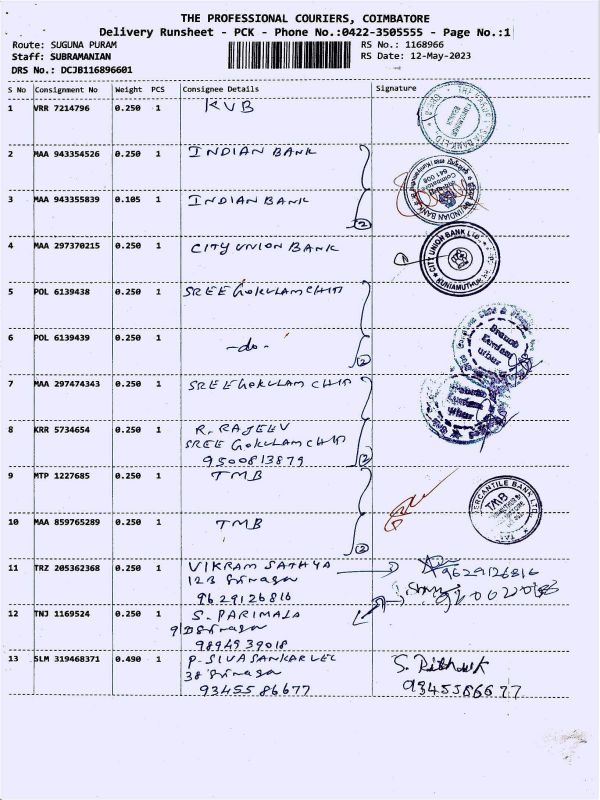 THE PROFESSIONAL COURIERS, COIMBATORE
Delivery Runsheet - PCK - Phone No.:0422-3505555 - Page No.:1
Route: SUGUNA PURAM RS No.: 1168966
Staff: SUBRAMANIAN RS Date: 12-May-2023
DRS No.: DCJB116896601
S No Consignment No Weight PCS Consignee Details Signature
1 VRR 7214796 0.250 1 KVB
2 MAA 943354526 0.250 1 INDIAN BANK
3 MAA 943355839 0.105 1 INDIAN BANK
2
4 MAA 297370215 0.250 1 CITY UNION BANK
CITY UNION BANK LTD.
KUNIAMUTHUR
5 POL 6139438 0.250 1 SREE GOKULAM CHIT
6 POL 6139439 0.250 1 -do-
2
7 MAA 297474343 0.250 1 SREE GOKULAM CHIT
8 KRR 5734654 0.250 1 R. RAJEEV
SREE GOKULAM CHIT
9500813879
2
9 MTP 1227685 0.250 1 TMB
MERCANTILE BANK LTD.
TMB
10 MAA 859765289 0.250 1 TMB
2
11 TRZ 205362368 0.250 1 VIKRAM SATHYA
123 Srinagar 9629126816
9629126816
12 TNJ 1169524 0.250 1 S. PARIMALA
Srinagar
9894939018
13 SLM 319468371 0.490 1 P. SIVASANKARVEL
38 Srinagar
9345586677 9345586677